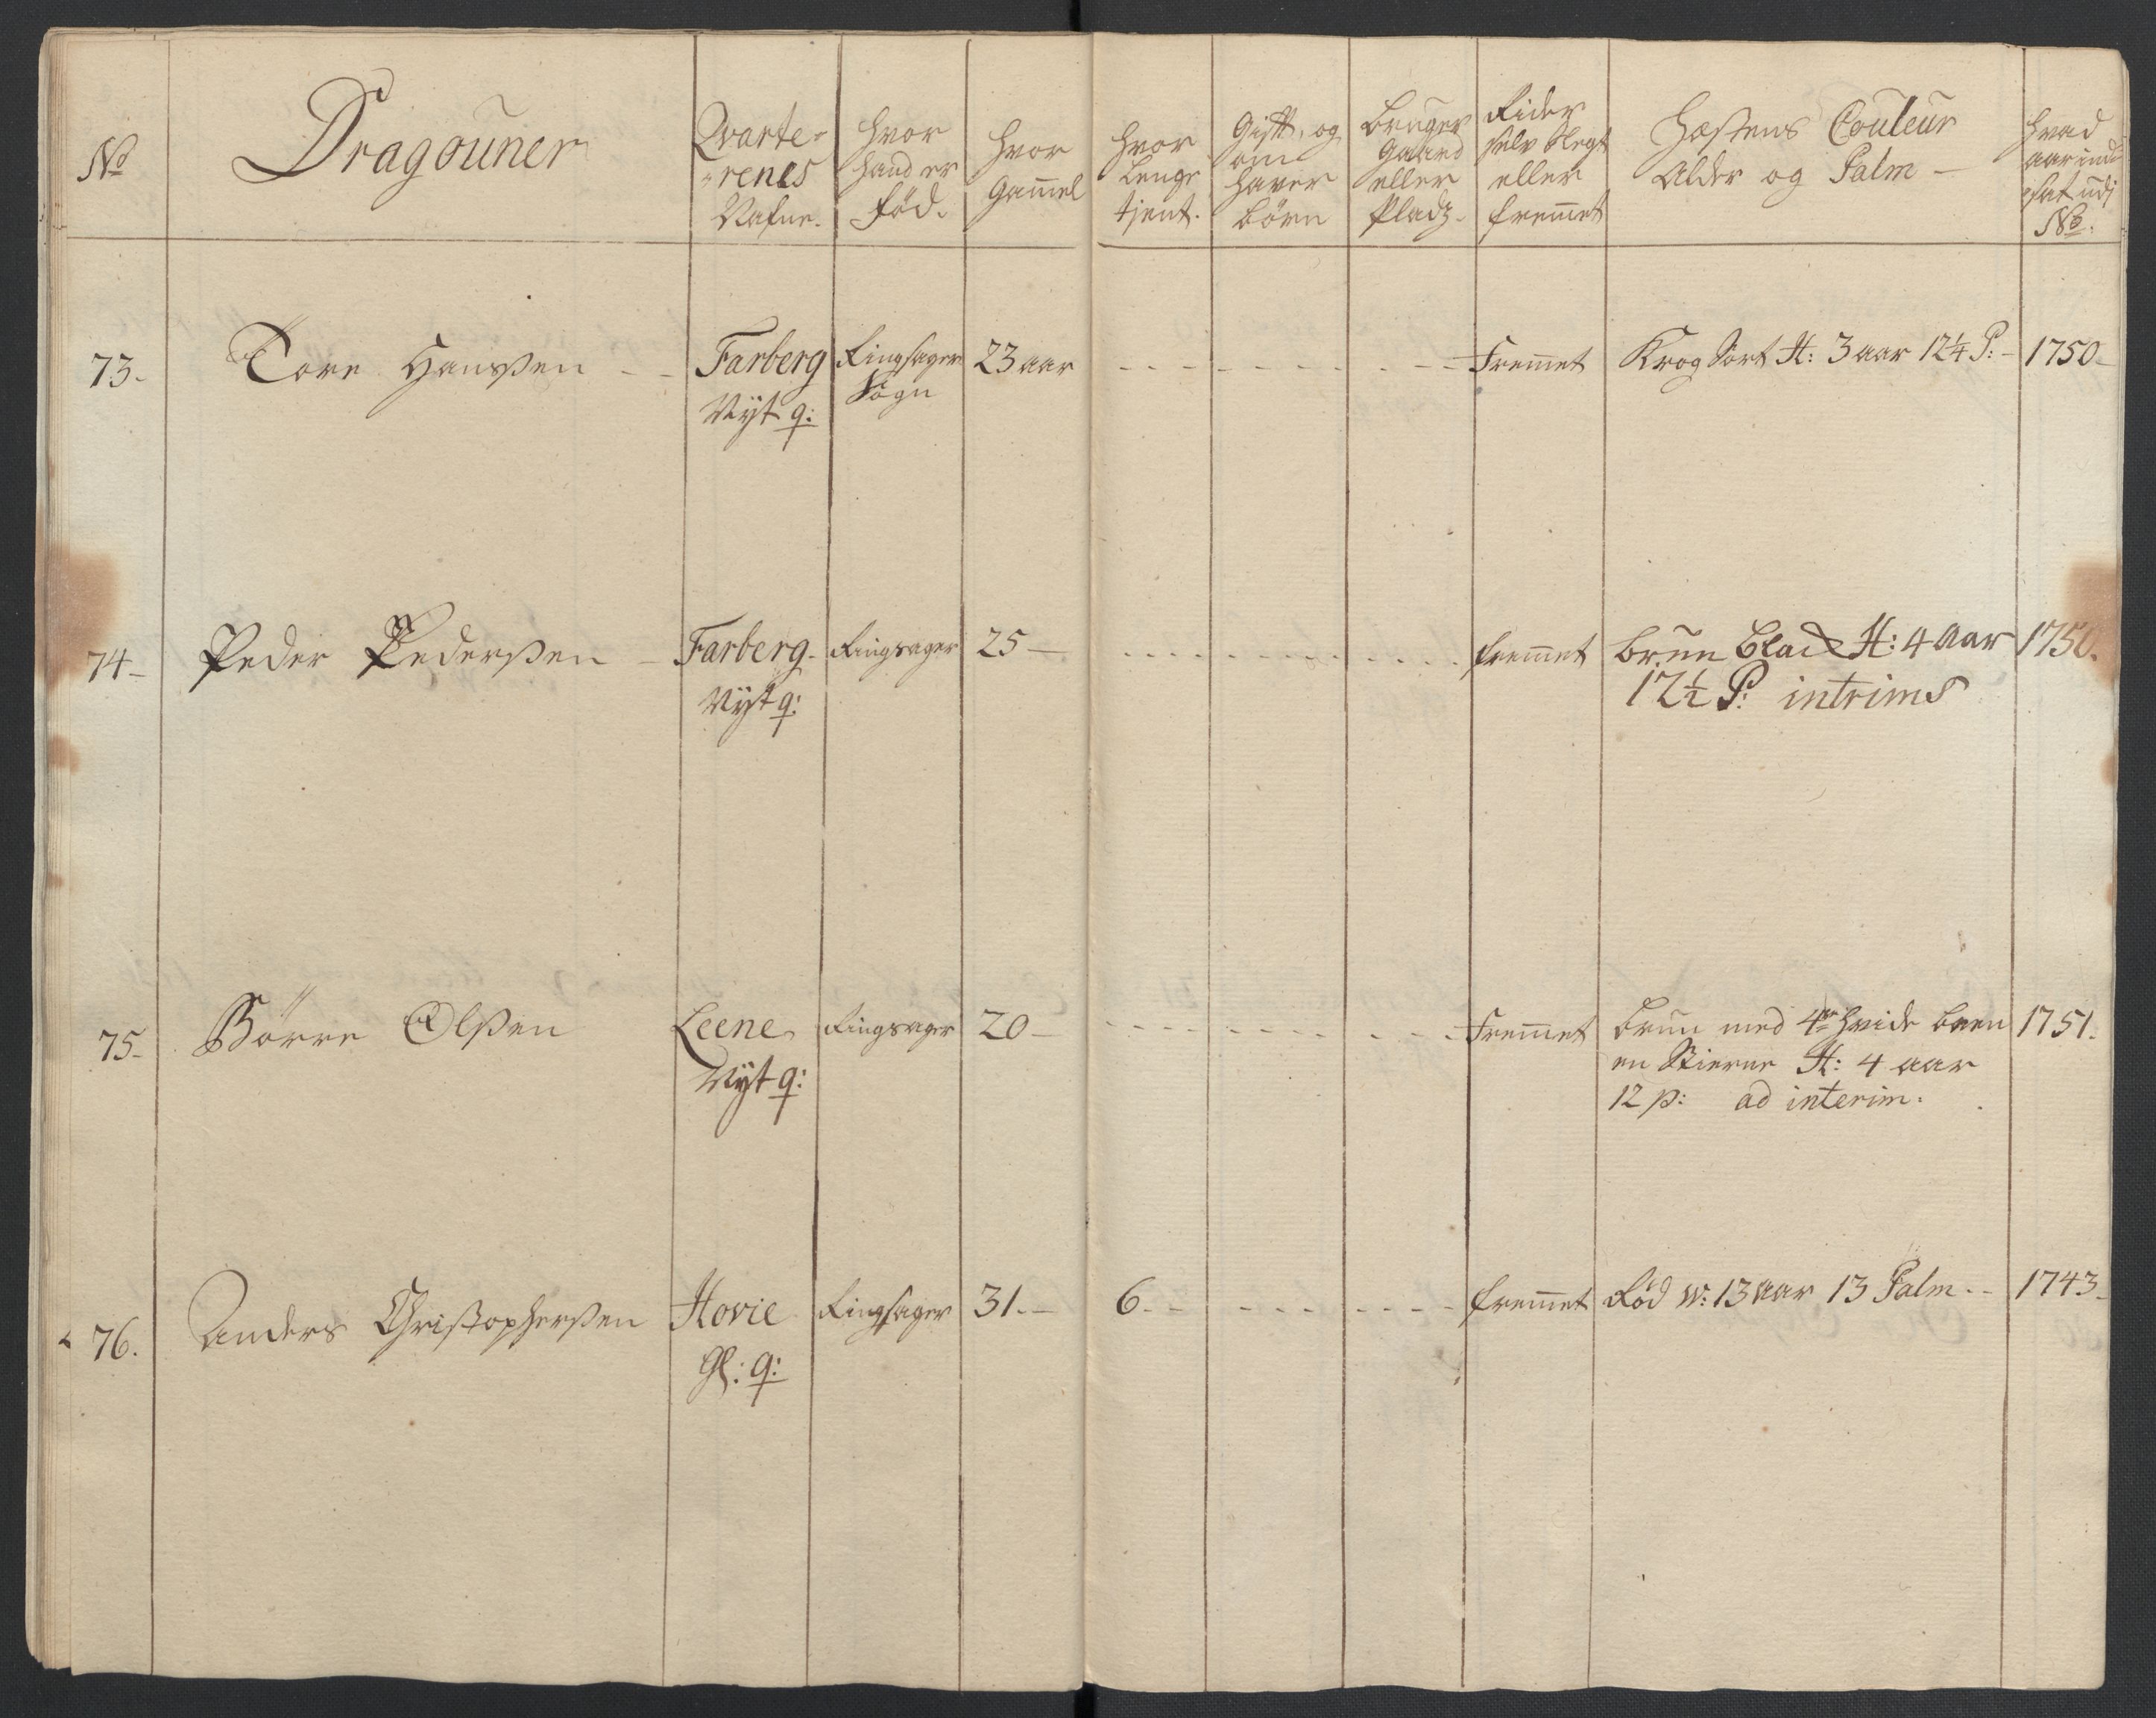 No
Dragouner
Qvarte-
-renes
Nafne.
Hvor
hand er
fød.
Hvor
Gam̄el
Hvor
Lenge
tient.
Gift, og
om
haver
børn
Bruger
Gaard
eller
Pladz.
Rider
selv Slegt
eller
frem̄et
Hæstens Couleur
Alder og Palm -
Hvad
aar ind-
sat udj
No.
73. Tore Hanssen - - Farberg Ringsager 23 aar - - - Frem̄et Krog Sort H: 3 aar 12¼ P: - 1750
Nÿt q: Sogn
74 Peder Pederssen - Farberg. Ringsager 25 - - - - frem̄et brun blac H: 4 Aar 1750.
Nÿt q: 12½ P: intrims
75. Börre Olssen Leene Ringsager 20 - - - - Frem̄et brun med 4re hvide been 1751.
Nÿt q: en Stierne H: 4 aar
12 p: ad interim.
76. Anders Christopherssen Hovie Ringsager 31. - 6. - - - frem̄et Rød W: 13 aar 13 Palm. - 1743
Gl: q: